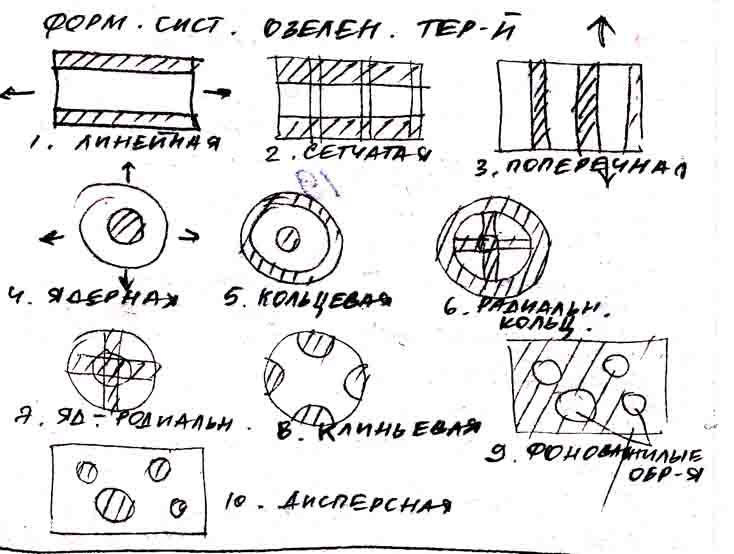 ФОРМ. СИСТ. ОЗЕЛЕН. ТЕР-Й
1. ЛИНЕЙНАЯ
2. СЕТЧАТАЯ
3. ПОПЕРЕЧНАЯ
4. ЯДЕРНАЯ
5. КОЛЬЦЕВАЯ
6. РАДИАЛЬН.
КОЛЬЦ.
7. ЯД-РОДИАЛЬН.
8. КЛИНЬЕВАЯ
9. ФОНОВАЯ
ЖИЛЫЕ
ОБР-Я
10. ДИСПЕРСНАЯ